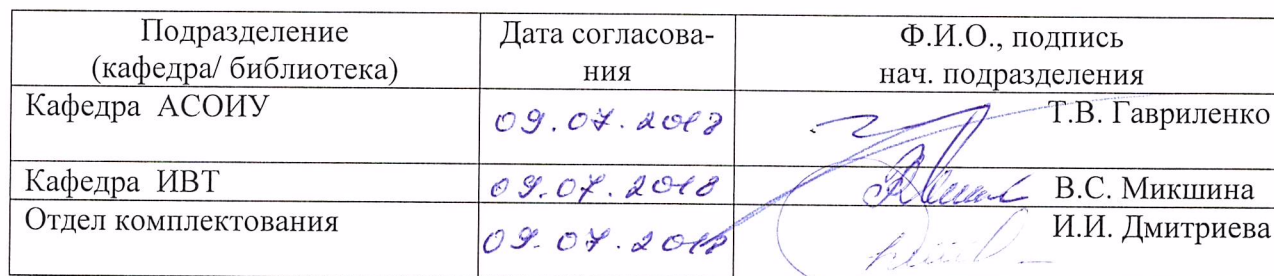 Подразделение
(кафедра/ библиотека)
Дата согласова-
ния
Ф.И.О., подпись
нач. подразделения
Кафедра АСОИУ
09.07.2018
Т.В. Гавриленко
Кафедра ИВТ
09.07.2018
В.С. Микшина
Отдел комплектования
09.07.2018
И.И. Дмитриева